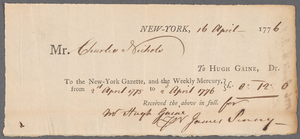 NEW-YORK, 16 April 1776
Mr. Charles Nichols
To HUGH GAINE, Dr.
To the New-York Gazette, and the Weekly Mercury,
from 2d April 1775 to 2 April 1776 £0:12:0
Received the above in full. for
Mr Hugh Gaine
James